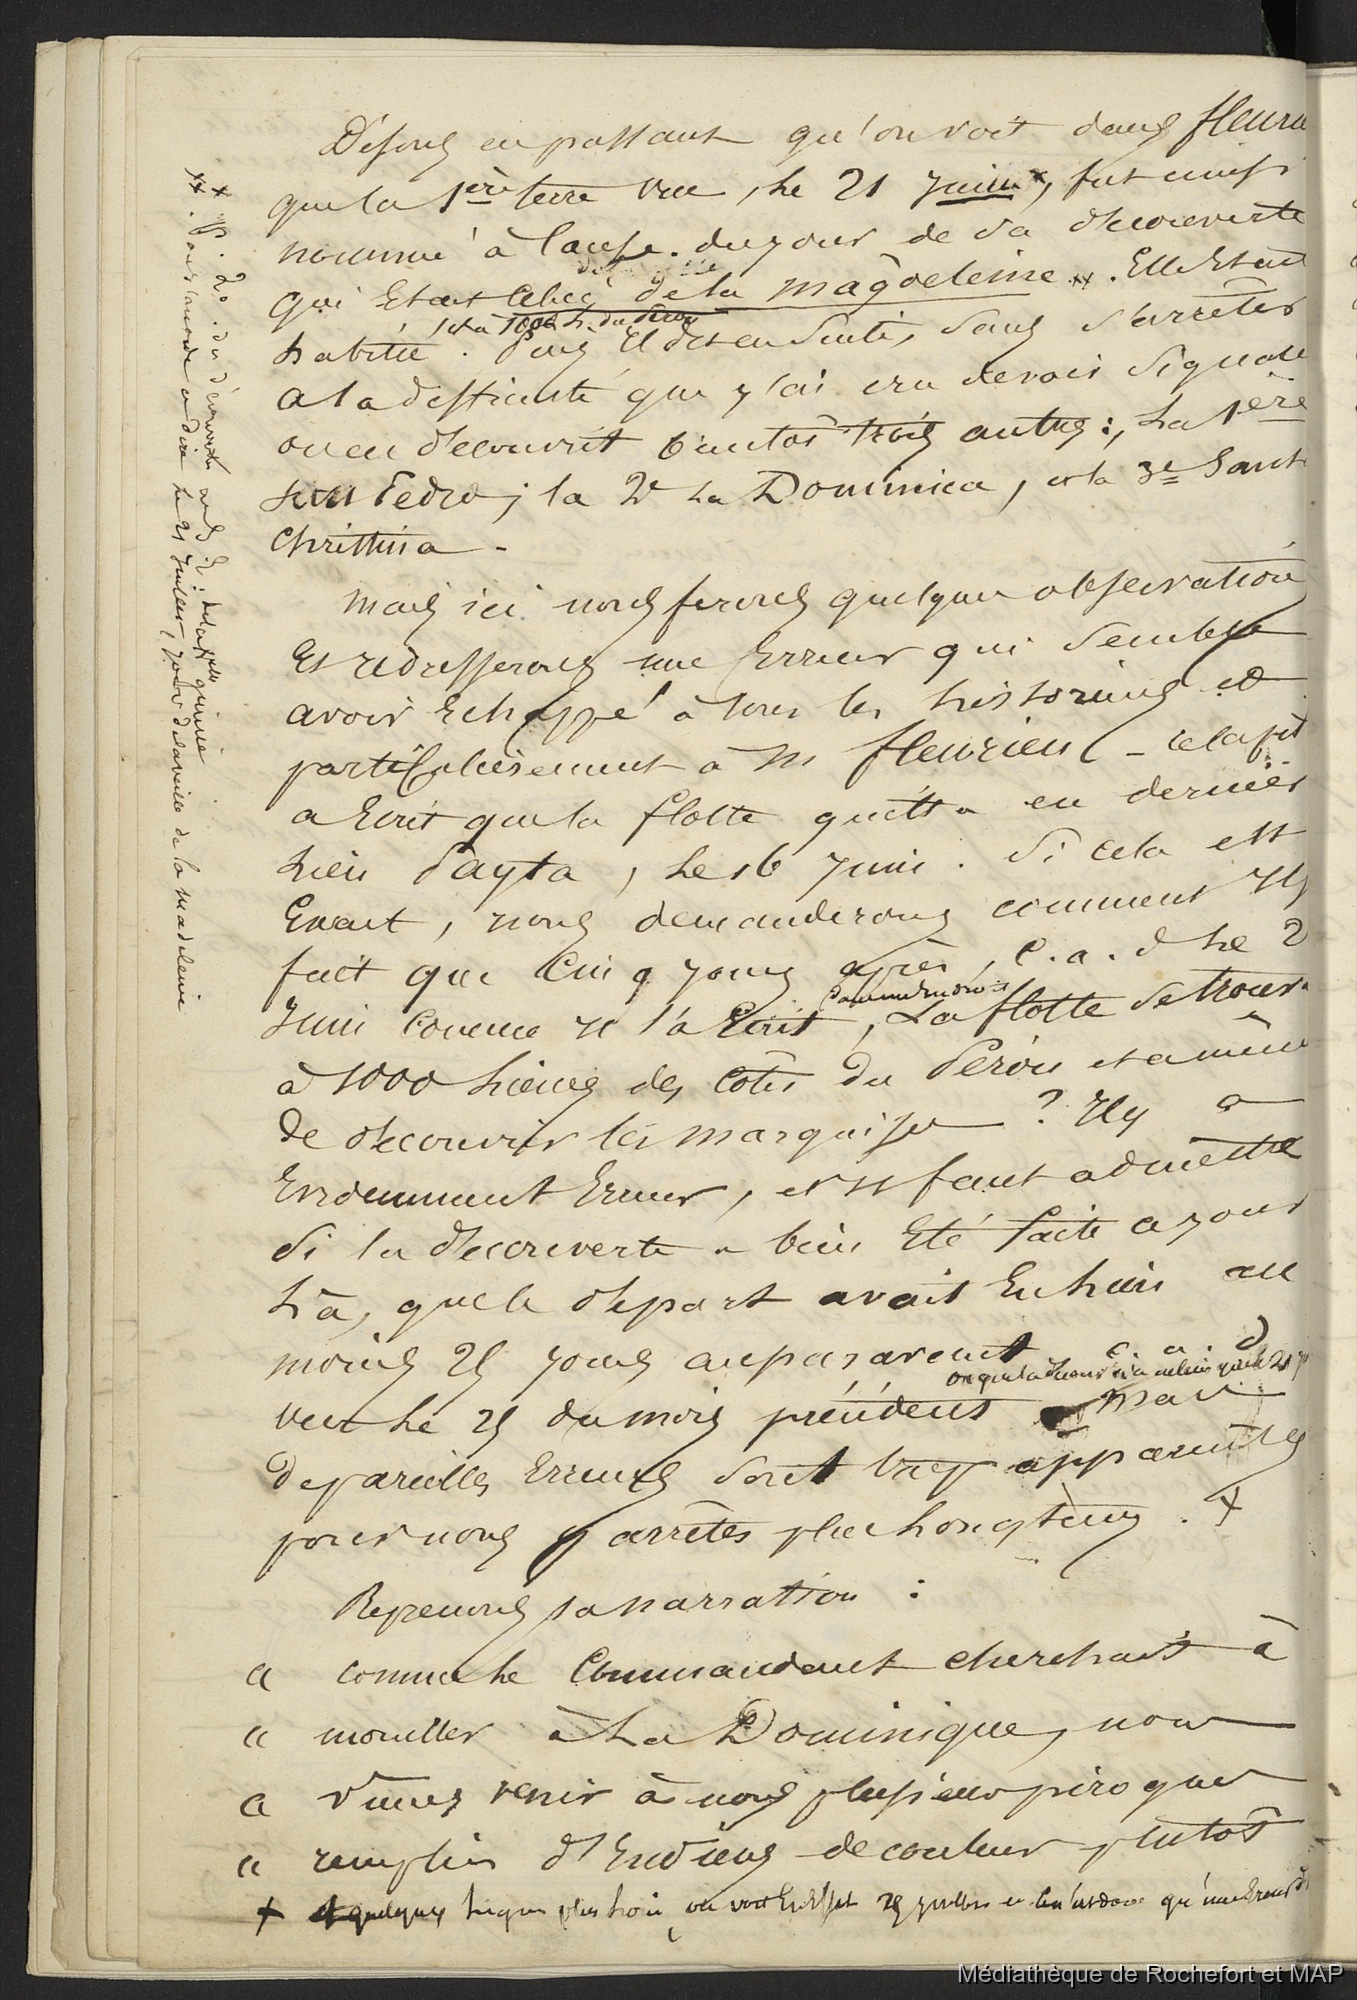 Disons en passant qu'on voit dans fleuri
que la 1ère terre vue, le 21 Juin x, fut ainsi
nommé à cause du jour de sa découverte
qui Etait celui de la magdeleine xx. Elle Etait
1ere à 1000 l. du Pérou
habitée. Puis il descendit, sans s'arrêter
a la difficulté que j'ai cru devoir signale
on en découvrit bientôt trois autres :, La 1ère
San Pedro ; la 2e La Dominica, et la 3e Sant
Christina -
mais ici nous ferons quelques observation
Et redresserons une Erreur qui semble
avoir Echappé à tous les historiens et
particulièrement à M fleurieu -
a Ecrit que la flotte quitta en dernier
lieu Payta, le 16 Juin. Si cela est
Exact, nous demanderons comment Il
fait que Cinq jours après, C. a. d le 2
Juin Comme il l'a Ecrit, La flotte se trouva
à 1000 lieues des Côtes du Pérou et à même
de découvrir les marquises ? Il y a
Evidemment Erreur, et il faut admettre
Si la découverte a bien Eté faite a jour
là, que le départ avait Eu lieu au
moins 25 jours auparavant c. a. d
vers le 25 du mois précédent mais
De pareilles Erreurs sont trop apparentes
pour nous y arrêter plus longtems. +
Reprenons sa narration :
« comme le Commandant cherchait à
« mouiller à La Dominique, nous
« vîmes venir à nous plusieurs pirogues
« remplies d'Indiens de couleur plutôt
+ quelques lignes plus loin, on voit 25 juillet
x p. 20. du découverte
xx. le 21 Juillet, jour de la veille de la madeleine
Médiathèque de Rochefort et MAP